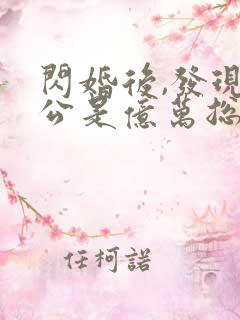 閃婚後,發現
公是億萬总
任柯諾